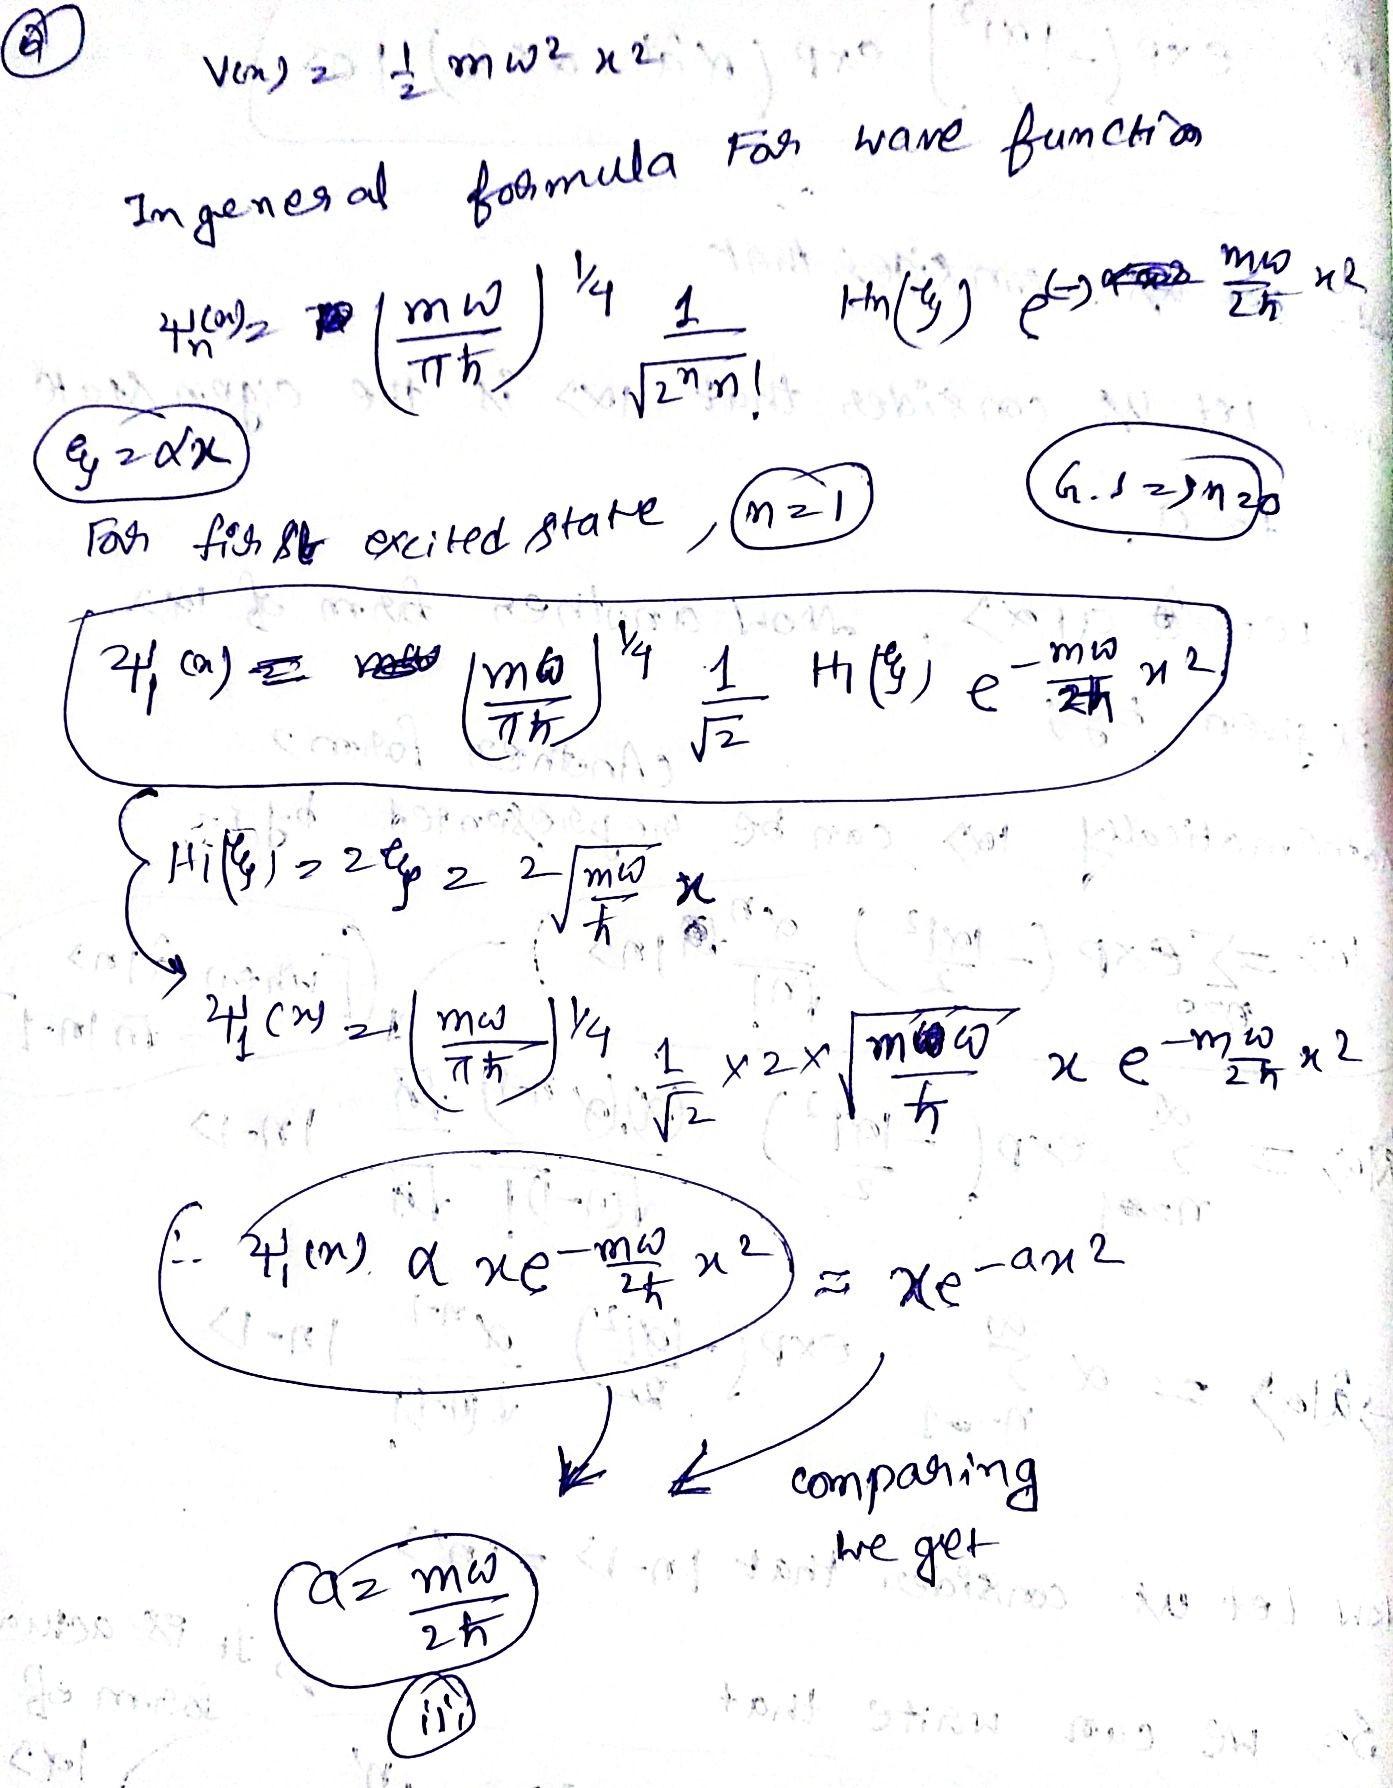 Q
V(x) = 1/2 mω² x²
In general formula For wave function
ψn(x) = (mω/πħ)^1/4 1/√(2ⁿ n!) Hn(ξ) e^(-) mω/2ħ x²
ξ = αx
G.S => n=0
For first excited state, n=1
ψ1(x) = (mω/πħ)^1/4 1/√2 H1(ξ) e^-mω/2ħ x²
H1(ξ) = 2ξ = 2√(mω/ħ) x
ψ1(x) = (mω/πħ)^1/4 1/√2 × 2 × √(mω/ħ) x e^-mω/2ħ x²
∴ ψ1(x) α xe^-mω/2ħ x² = xe^-ax²
comparing
we get
a = mω/2ħ
iii